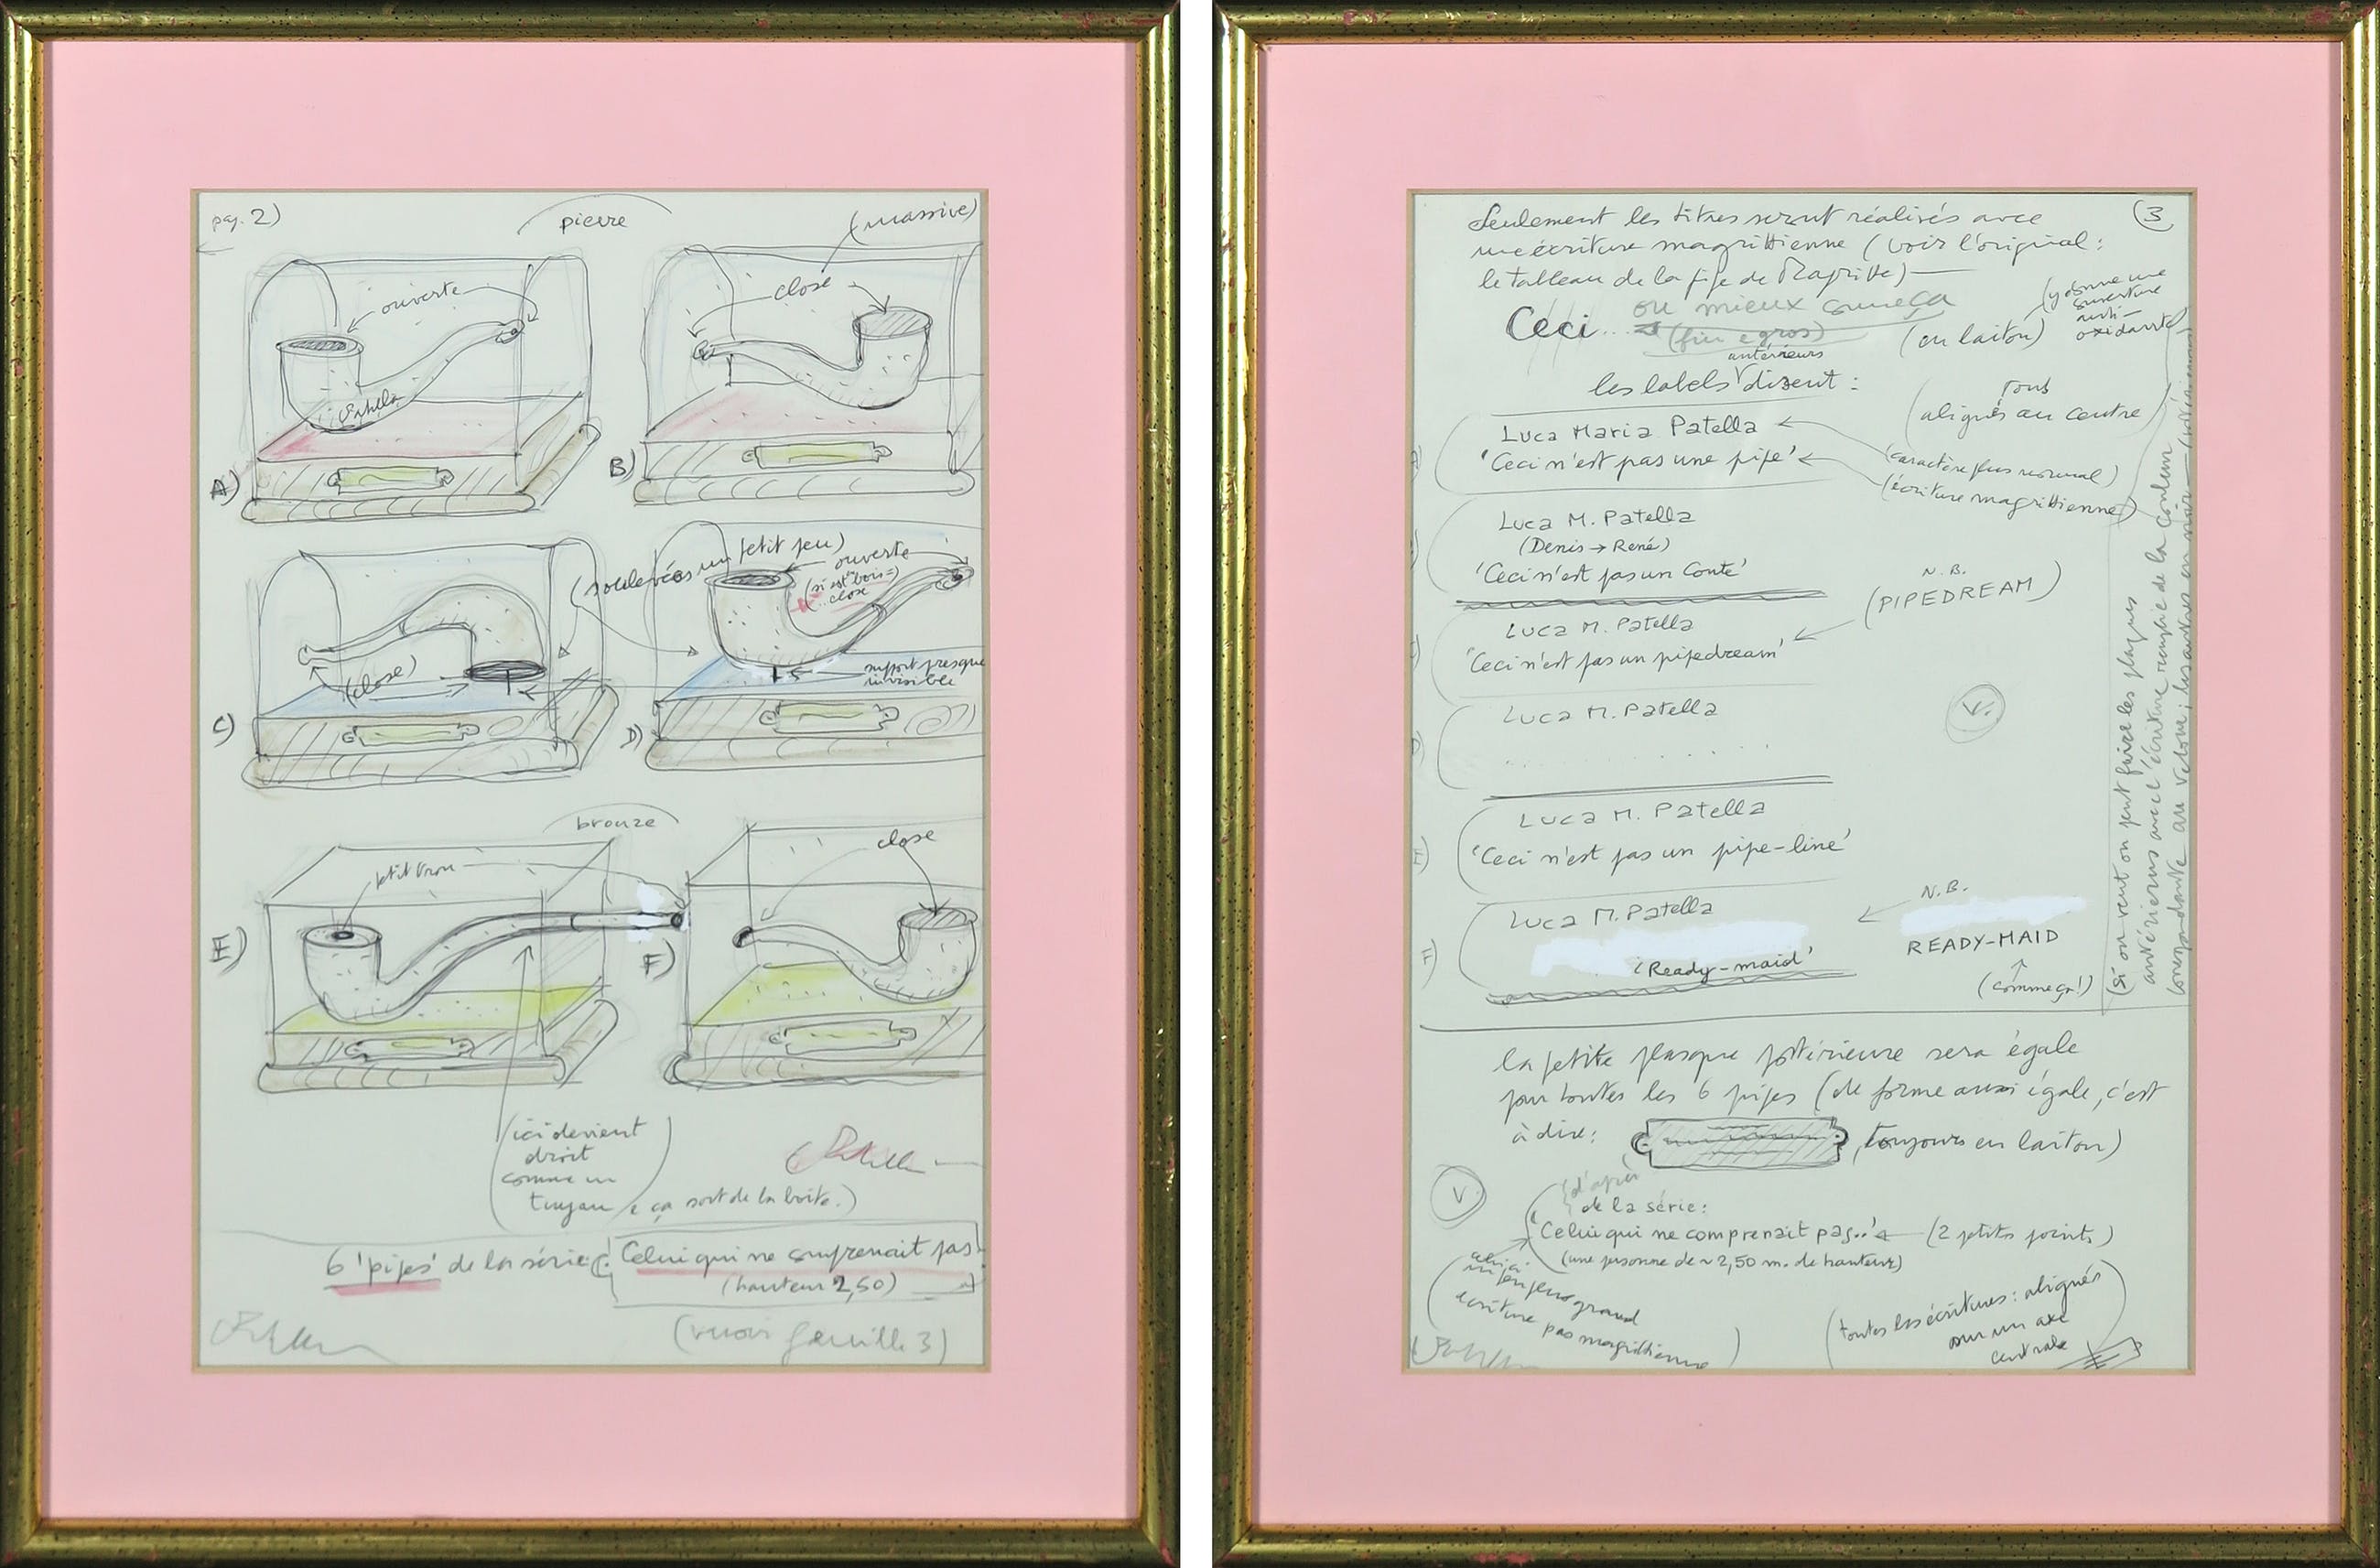 pag. 2)
pierre
(massive)
ouverte
close
Patella
A)
B)
(soulevées un petit peu)
ouverte
(si est "bois" =)
close
(close)
support presque
invisible
C)
D)
bronze
petit trou
close
E)
F)
(ici devient
droit
comme un
tuyau e ça sort de la boite.)
6 'pipes' de la série:
Celui qui ne comprenait pas
(hauteur 2,50)
(voir feuille 3)
(3
Seulement les titres seront réalisés avec
une écriture magrittienne (voir l'original:
le tableau de la pipe de Magritte)
Ceci... ou mieux comme ça
(fin e gros)
(en laiton)
(y donne une
couverture
anti-
oxidante)
antérieurs
les labels disent:
(tous
alignés au centre)
Luca Maria Patella
'Ceci n'est pas une pipe'
(caractère plus normal)
(écriture magrittienne)
Luca M. Patella
(Denis → René)
'Ceci n'est pas un Conte'
Luca M. Patella
'Ceci n'est pas un pipedream'
N.B.
(PIPEDREAM)
Luca M. Patella
. . . . . . .
V.
Luca M. Patella
'Ceci n'est pas un pipe-line'
Luca M. Patella
'Ready-maid'
N.B.
READY-MAID
(comme ça!)
(Si on veut on peut faire les plaques
antérieures avec l'écriture remplie de la couleur
correspondante au velours; les autres en noir
la petite plaque postérieure sera égale
pour toutes les 6 pipes (de forme aussi égale, c'est
à dire: , toujours en laiton)
V.
d'après
de la série:
'Celui qui ne comprenait pas..' (2 petits points)
(une personne de ~ 2,50 m. de hauteur)
un peu grand
écriture pas magrittienne)
(toutes les écritures: alignés
sur un axe
centrale